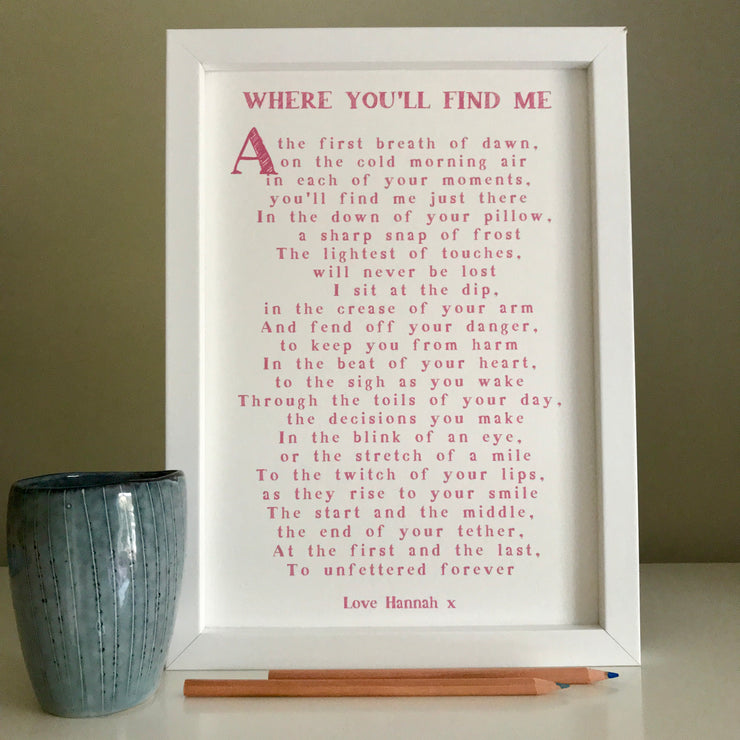 WHERE YOU'LL FIND ME
A the first breath of dawn,
on the cold morning air
in each of your moments,
you'll find me just there
In the down of your pillow,
a sharp snap of frost
The lightest of touches,
will never be lost
I sit at the dip,
in the crease of your arm
And fend off your danger,
to keep you from harm
In the beat of your heart,
to the sigh as you wake
Through the toils of your day,
the decisions you make
In the blink of an eye,
or the stretch of a mile
To the twitch of your lips,
as they rise to your smile
The start and the middle,
the end of your tether,
At the first and the last,
To unfettered forever
Love Hannah x